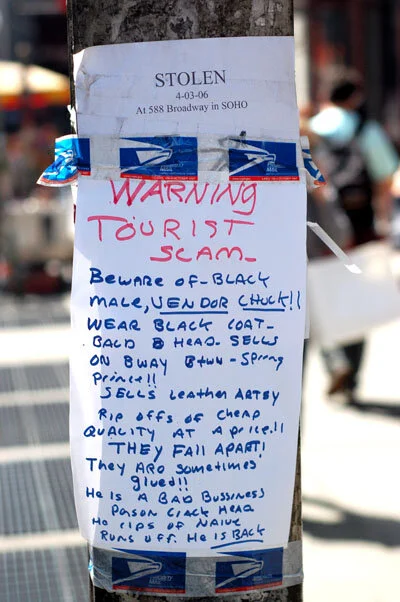 STOLEN
4-03-06
At 588 Broadway in SOHO
WARNING
TOURIST
SCAM-
BEWARE OF-BLACK
MALE, VENDOR CHUCK!!
WEAR BLACK COAT-
BALD HEAD- SELLS
ON BWAY BTWN - SPRING
PRINCE!!
SELLS LEATHER ARTSY
RIP OFFS OF CHEAP
QUALITY AT A PRICE.!!
THEY FALL APART!
THEY ARE SOMETIMES
glued!!
He is A BAD BUSSINESS
PERSON CRACK HEAD
HE RIPS OF NAIVE
RUNS OFF. HE IS BACK